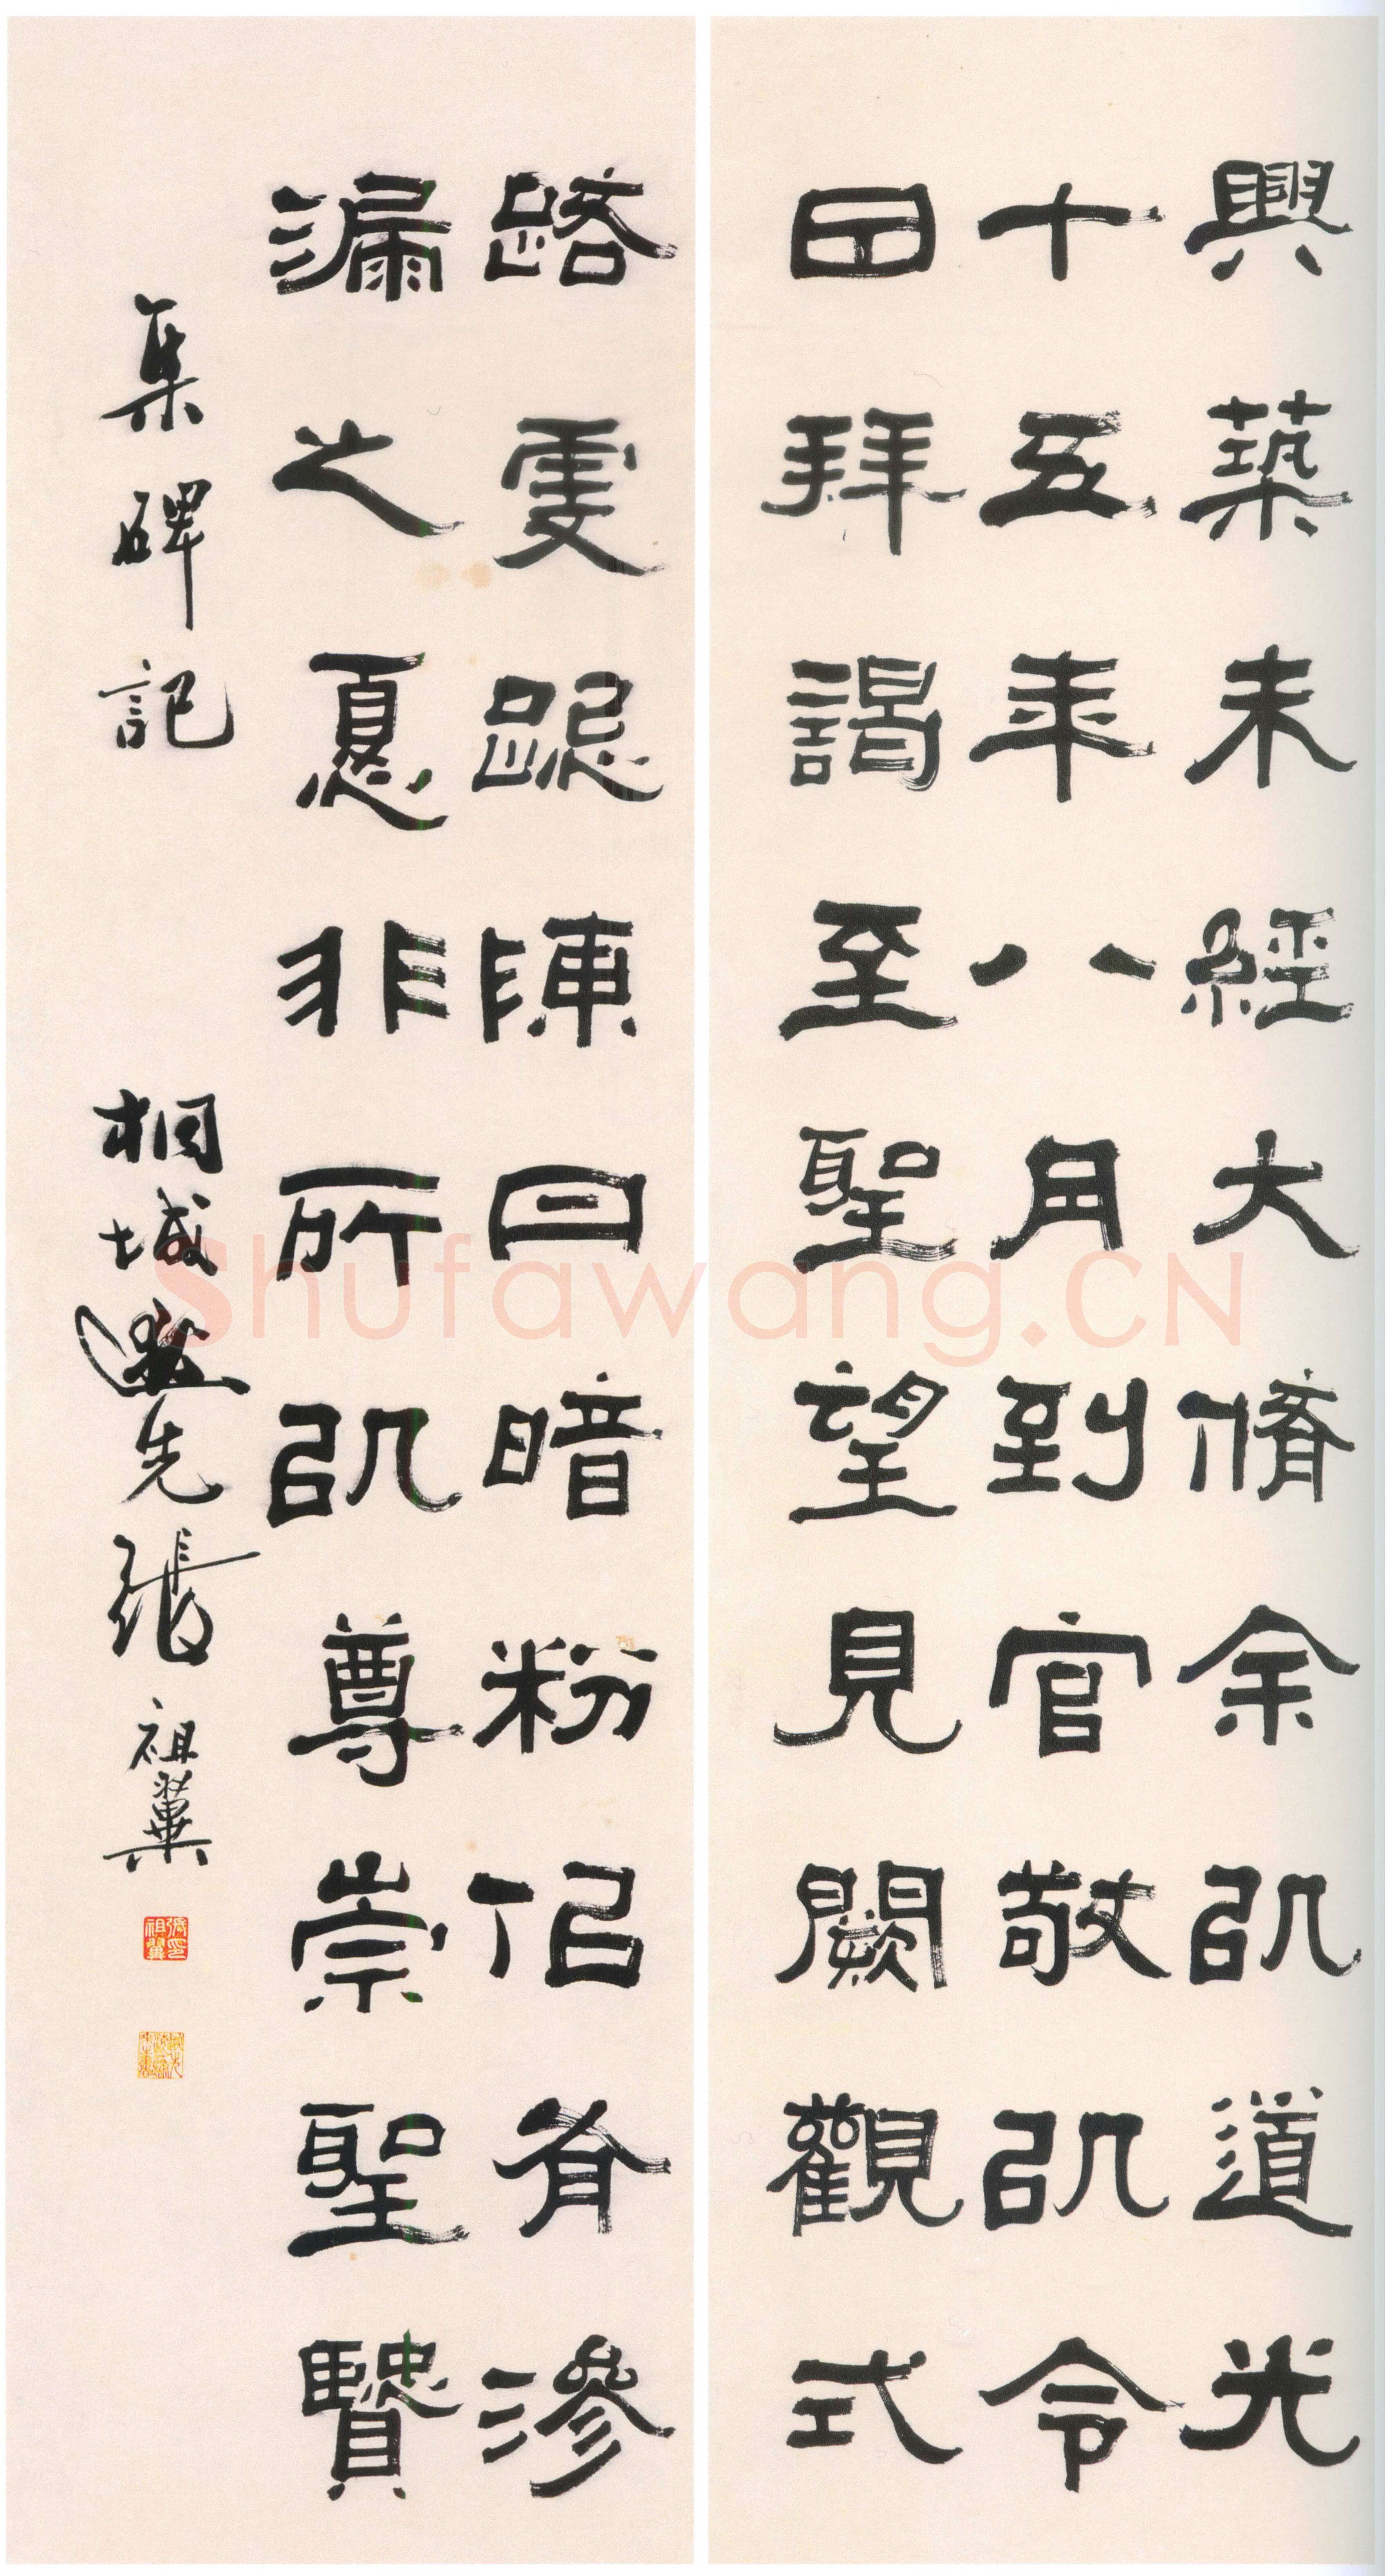 興築未經大脩余以道光
十五年八月到官敬以令
日拜謁至聖望見闕觀式
路虔跽陳丹暗粉佀脊滲
漏之憂非所以尊崇聖賢
集碑記 桐城逖先張祖翼
張祖翼印
Shufawang.CN